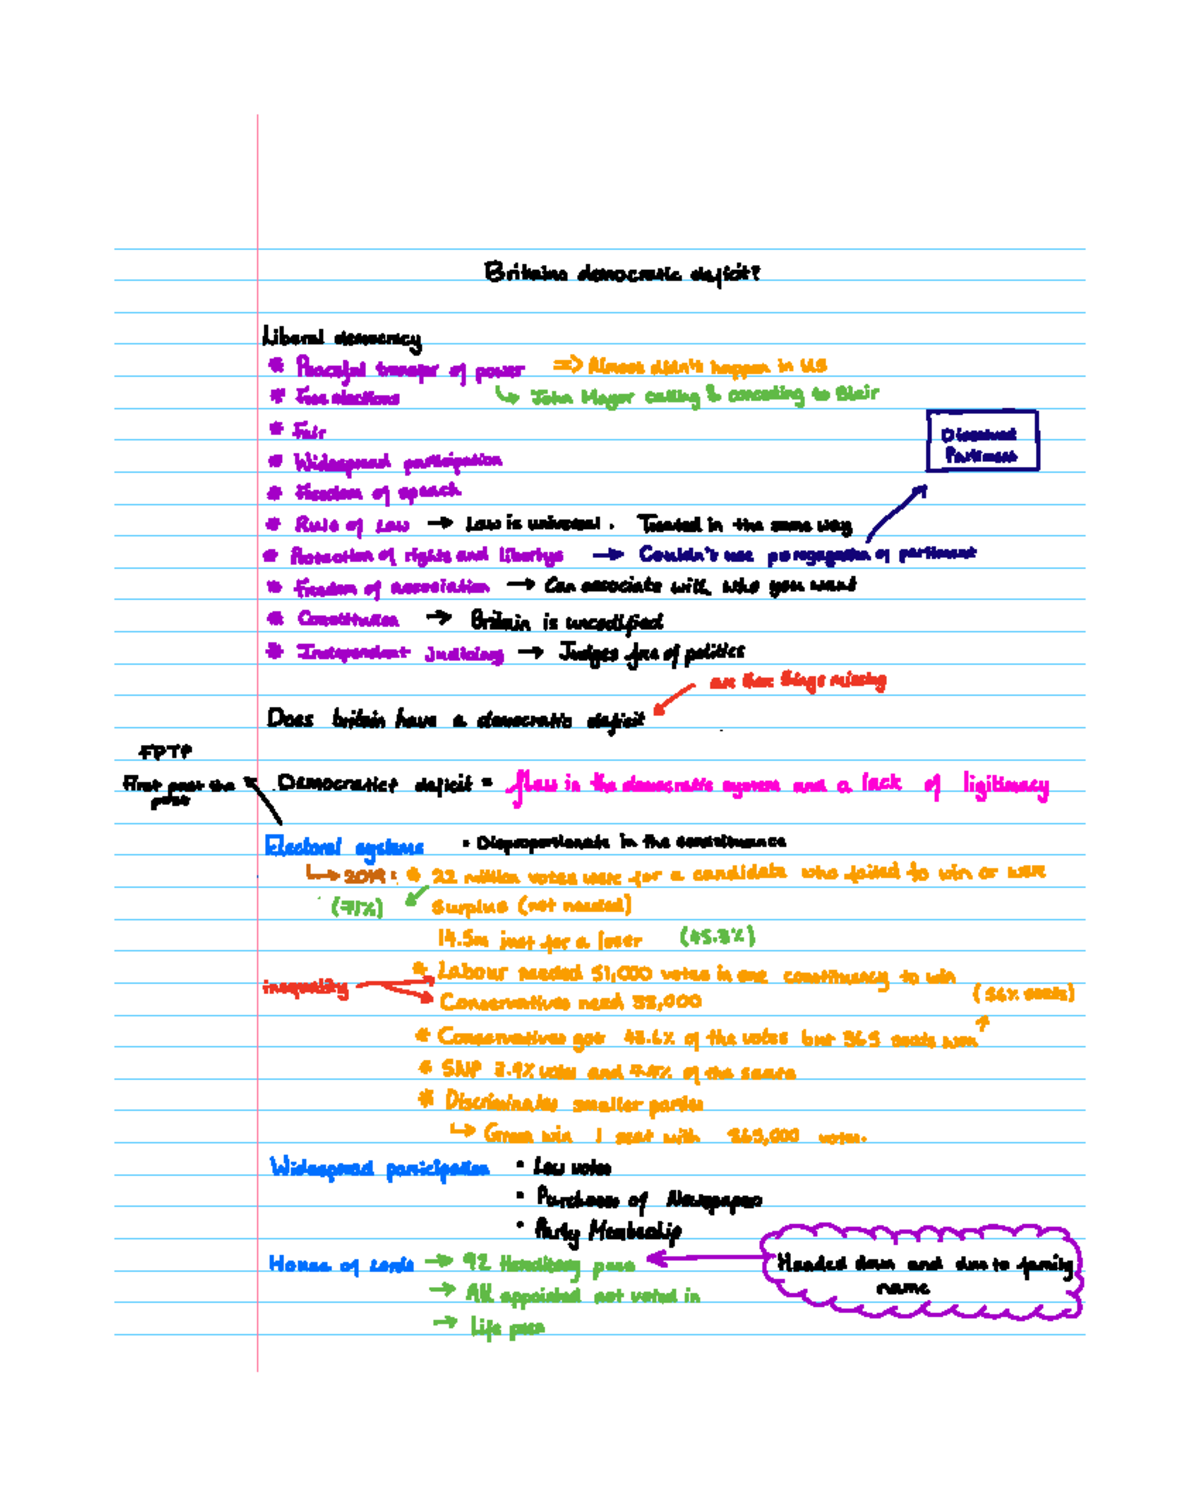 Britains democratic deficit?
Liberal democracy
* Peaceful transfer of power => Almost didn't happen in US
* Free elections ↳ John Mayor calling & conceding to Blair
* Fair
* Widespread participation
Dissolved
Parliment
* Freedom of speech
* Rule of Law → Law is universal. Treated in the same way
* Protection of rights and libertys → Couldn't use of parliment
* Freedom of association → Can associate with who you want
* Constitution → Britain is uncodified
* Independent judiciary → Judges free of politics
are there things missing
Does britain have a democratic deficit
FPTP
First past the
post
Democratic deficit = flaw in the democratic system and a lack of ligitimacy
Electoral systems • Disproportionate in the
↳ 2019: * 22 million votes were for a candidate who failed to win or were
(71%) surplus (not needed)
14.5m just for a loser (45.3%)
* Labour needed 51,000 votes in one constituency to win
inequality
Conservatives need 38,000 (56% seats)
* Conservatives got 43.6% of the votes but 365 seats won
* SNP 3.9% votes and of the seats
* Discriminates smaller parties
↳ Green win 1 seat with votes.
Widespread participation • Low votes
• Purchases of Newspapers
• Party Membership
House of Lords → 92 Hereditary peers
Handed down and due to family
name
→ All appointed not voted in
→ Life peers